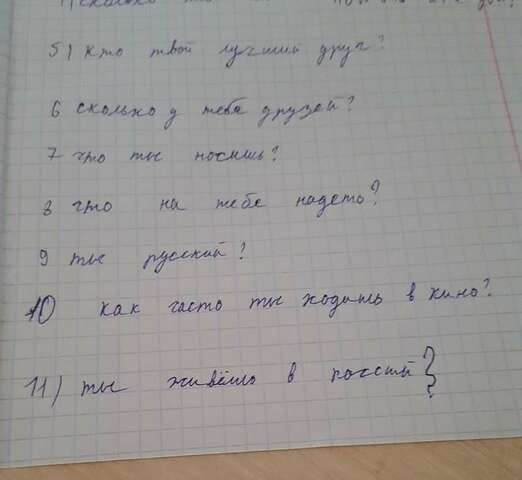 сколько
5) кто твой лучший друг?
6 сколько у тебя друзей?
7 что ты носишь?
8 что на тебе надето?
9 ты русский?
10 как часто ты ходишь в кино?
11) ты живёшь в россии?